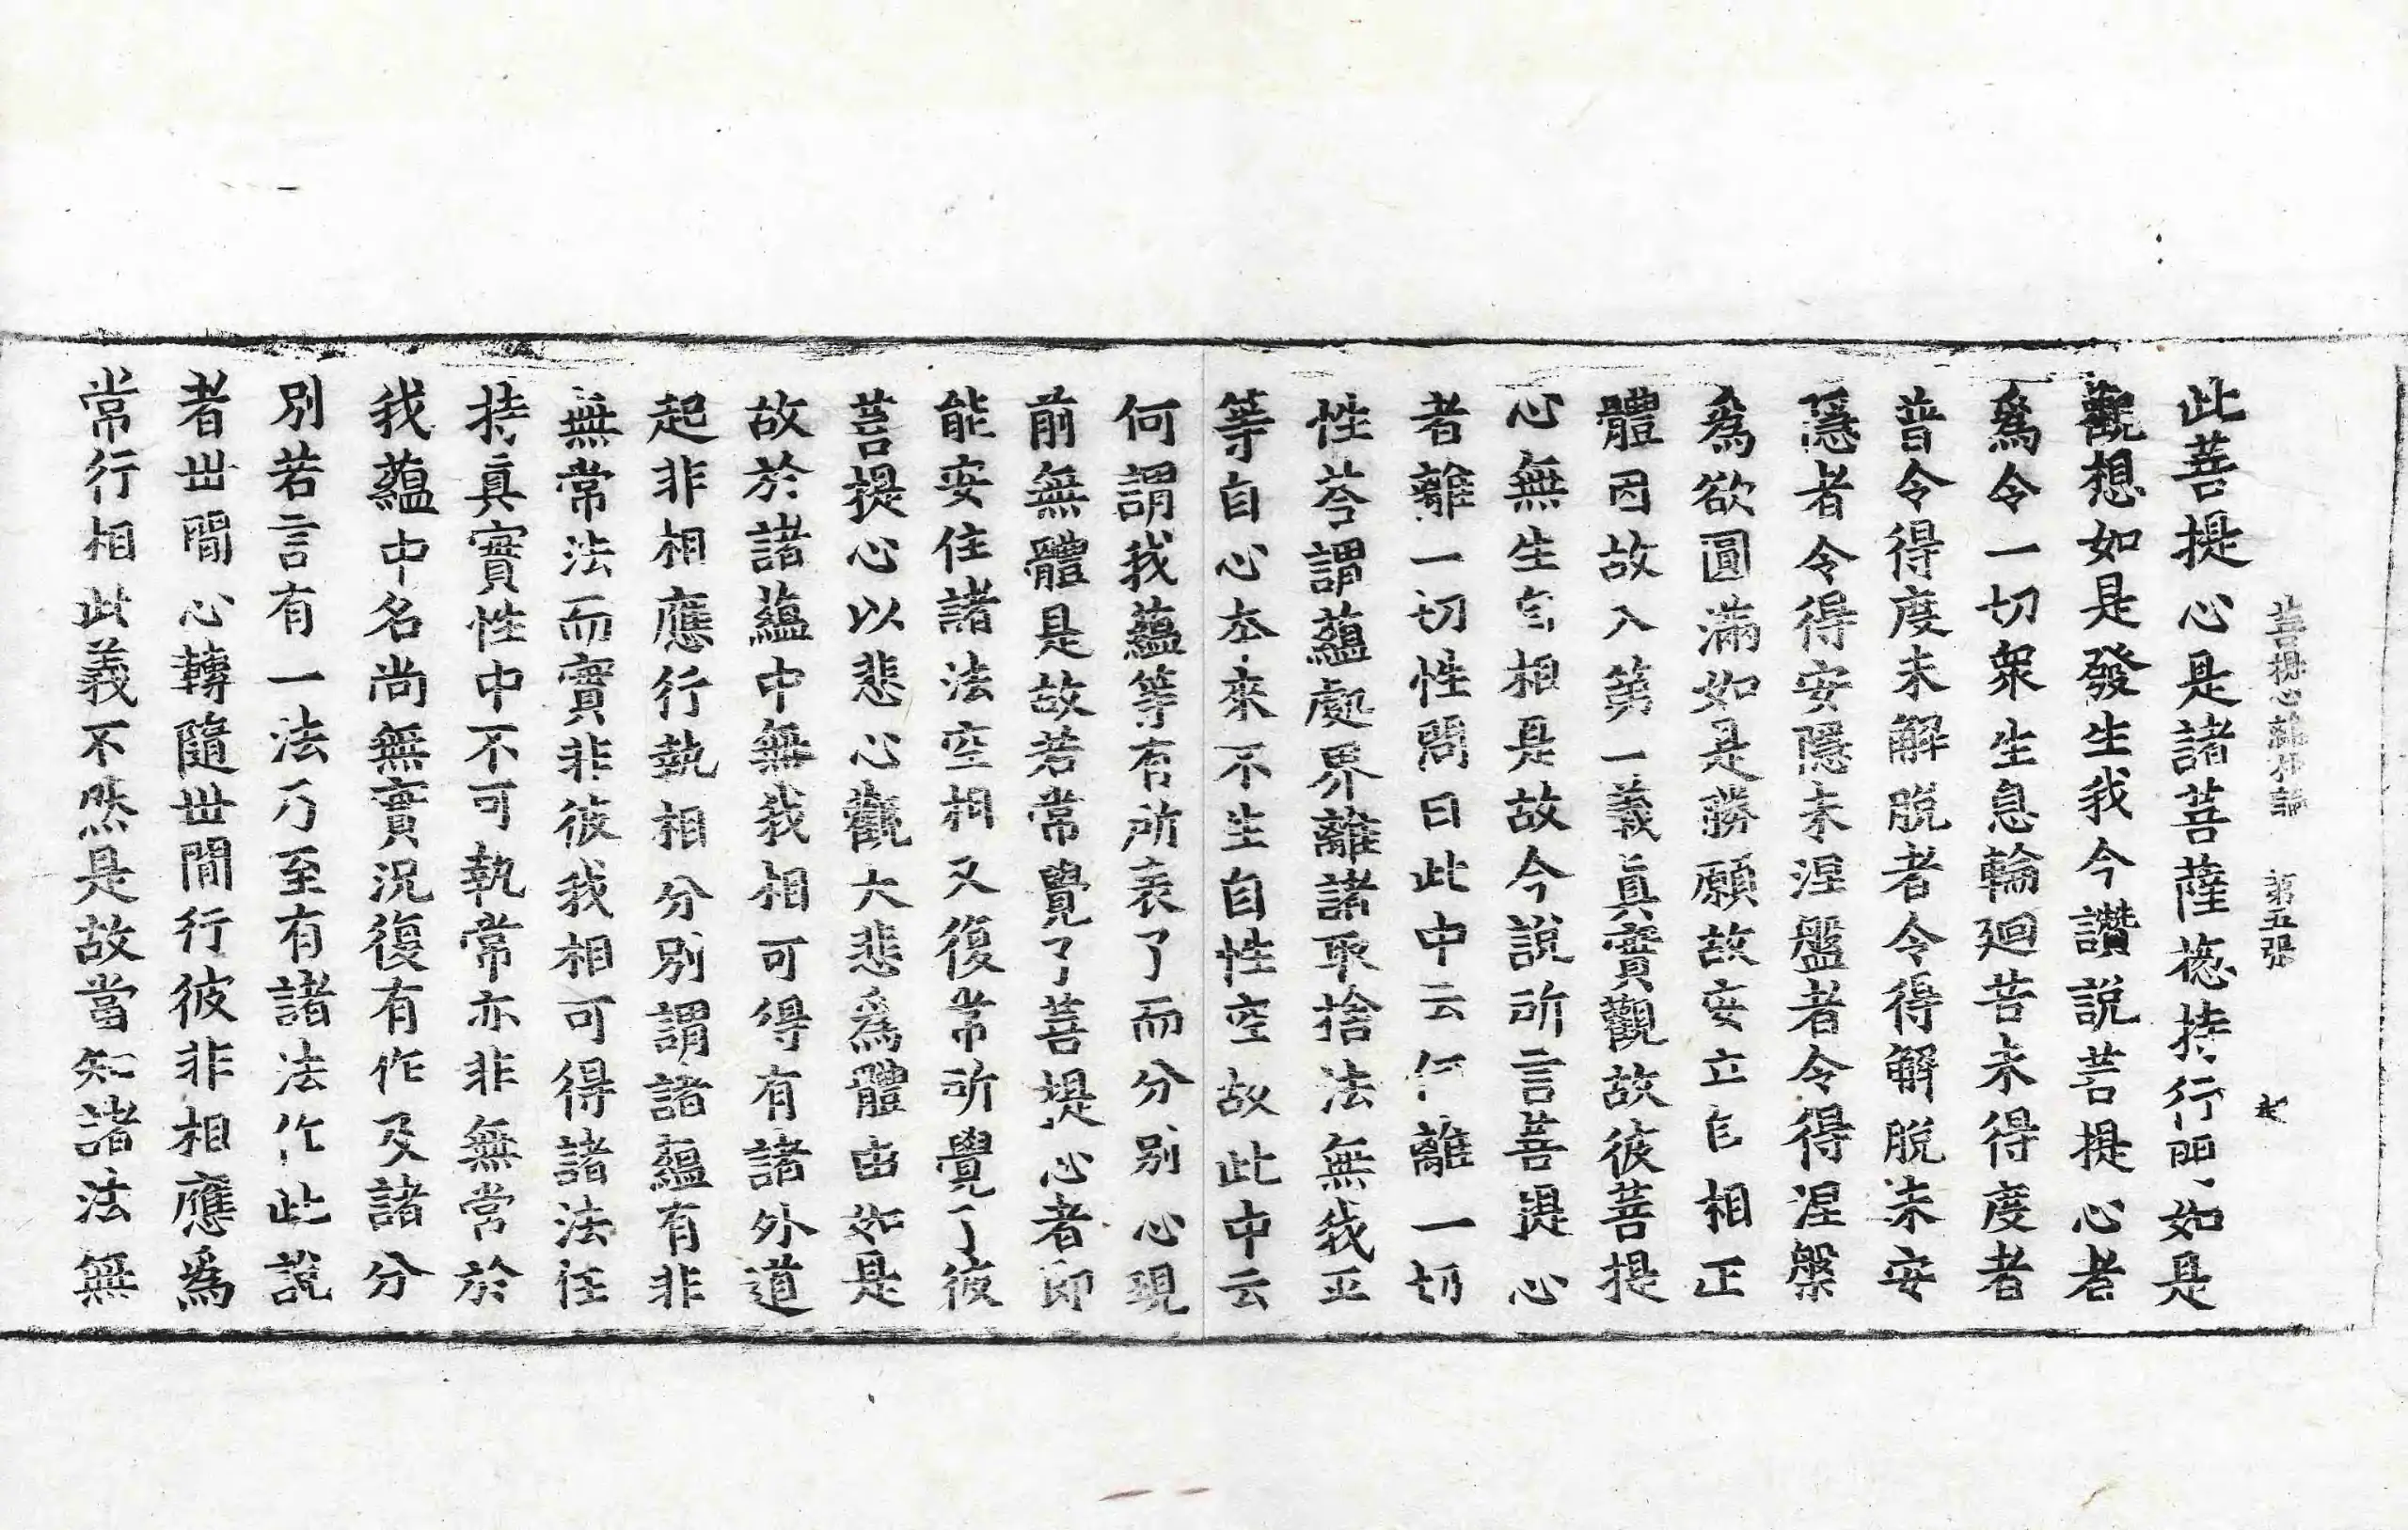 菩提心離相論 第五張
此菩提心是諸菩薩揔持行門如是
觀想如是發生我今讚說菩提心者
爲令一切衆生息輪迴苦未得度者
普令得度未解脫者令得解脫未安
隱者令得安隱未涅盤者令得涅槃
爲欲圓滿如是勝願故安立自相正
體因故入第一義真實觀故彼菩提
心無生自相是故今說所言菩提心
者離一切性問曰此中云何離一切
性荅謂蘊處界離諸取捨法無我平
等自心本來不生自性空故此中云
何謂我蘊等有所表了而分別心現
前無體是故若常覺了菩提心者即
能安住諸法空相又復常所覺了彼
菩提心以悲心觀大悲爲體由如是
故於諸蘊中無我相可得有諸外道
起非相應行執相分別謂諸蘊有非
無常法而實非彼我相可得諸法任
持真實性中不可執常亦非無常於
我蘊中名尚無實況復有作及諸分
別若言有一法乃至有諸法作此說
者丗間心轉隨丗間行彼非相應爲
常行相此義不然是故當知諸法無